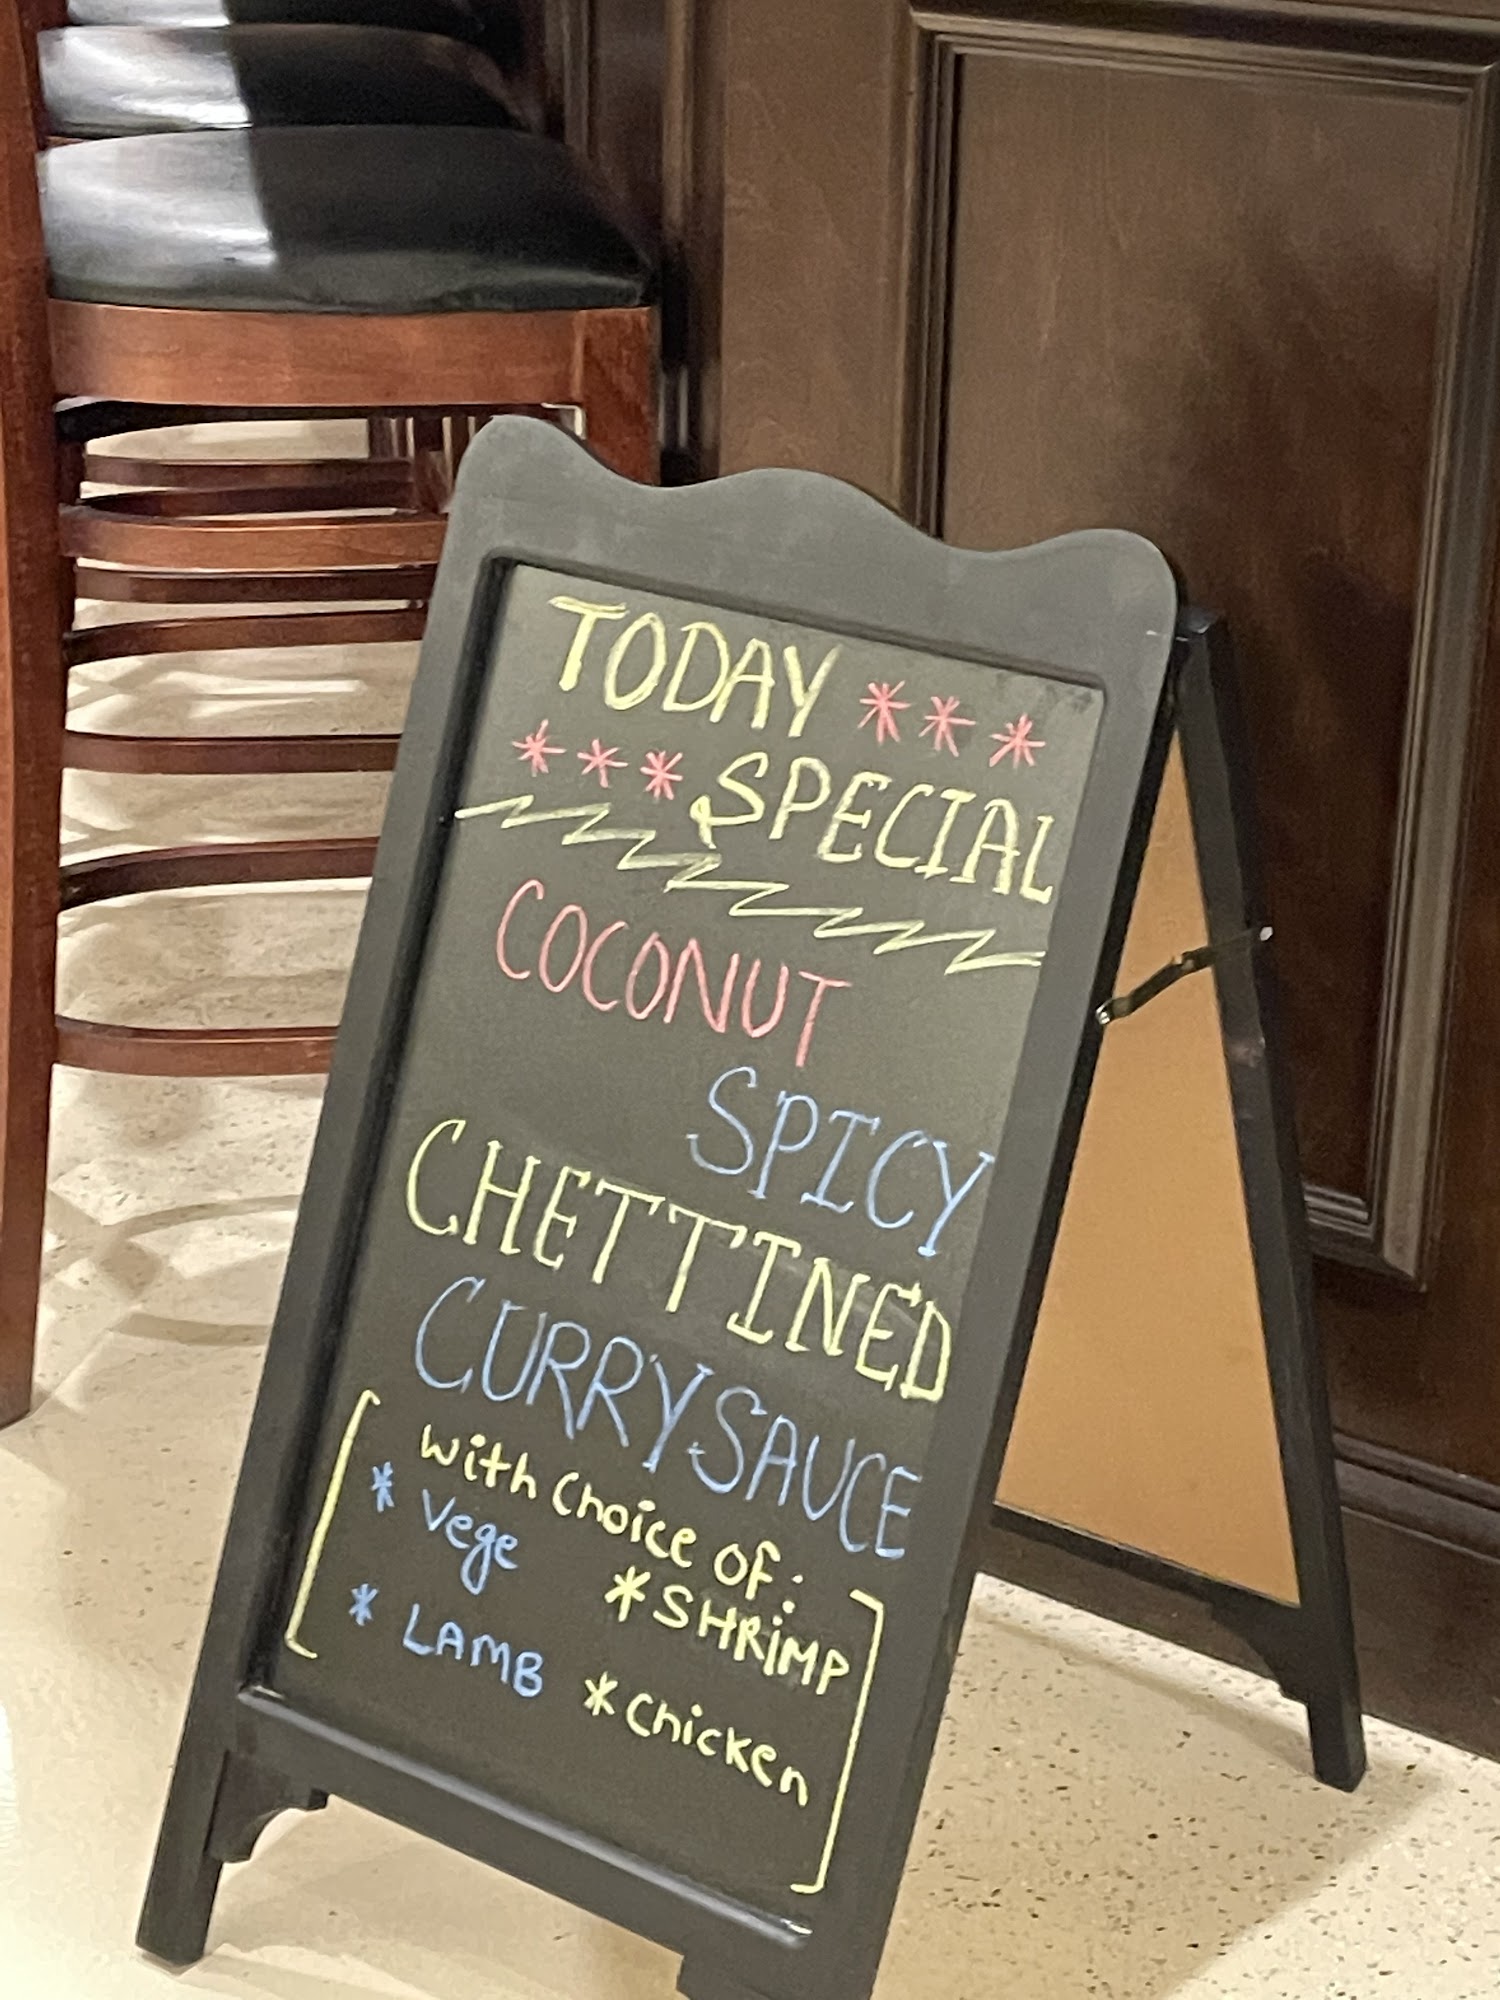 TODAY ***
*** SPECIAL
COCONUT
SPICY
CHETTINED
CURRY SAUCE
with choice of:
* Vege
* SHRiMP
* LAMB
* Chicken